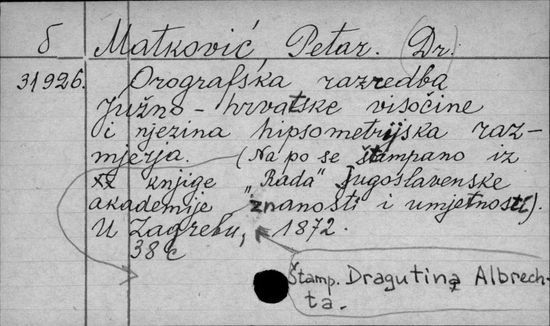 б Matković, Petar. (Dr.)
31926. Orografska razredba
južno-hrvatske visočine
i njezina hipsometrijska raz-
mjerja. (Na po se štampano iz
XX knjige „Rada" Jugoslavenske
akademije znanosti i umjetnosti).
U Zagrebu, 1872.
38 č
Štamp. Dragutina Albrech-
ta.